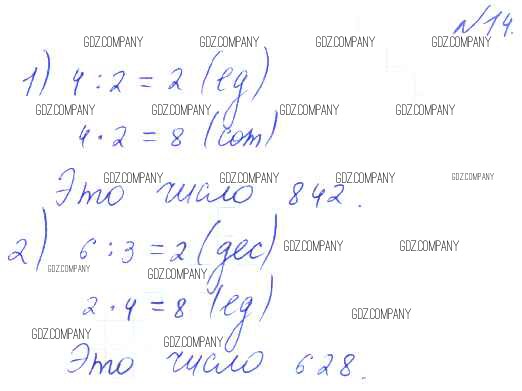 №14.
GDZ.COMPANY GDZ.COMPANY GDZ.COMPANY GDZ.COMPANY
1) 4 : 2 = 2 (ед)
GDZ.COMPANY GDZ.COMPANY GDZ.COMPANY GDZ.COMPANY
4 · 2 = 8 (сот)
GDZ.COMPANY GDZ.COMPANY GDZ.COMPANY GDZ.COMPANY
Это число 842.
2) 6 : 3 = 2 (дес) GDZ.COMPANY GDZ.COMPANY
GDZ.COMPANY GDZ.COMPANY
2 · 4 = 8 (ед)
GDZ.COMPANY
GDZ.COMPANY GDZ.COMPANY
Это число 628.